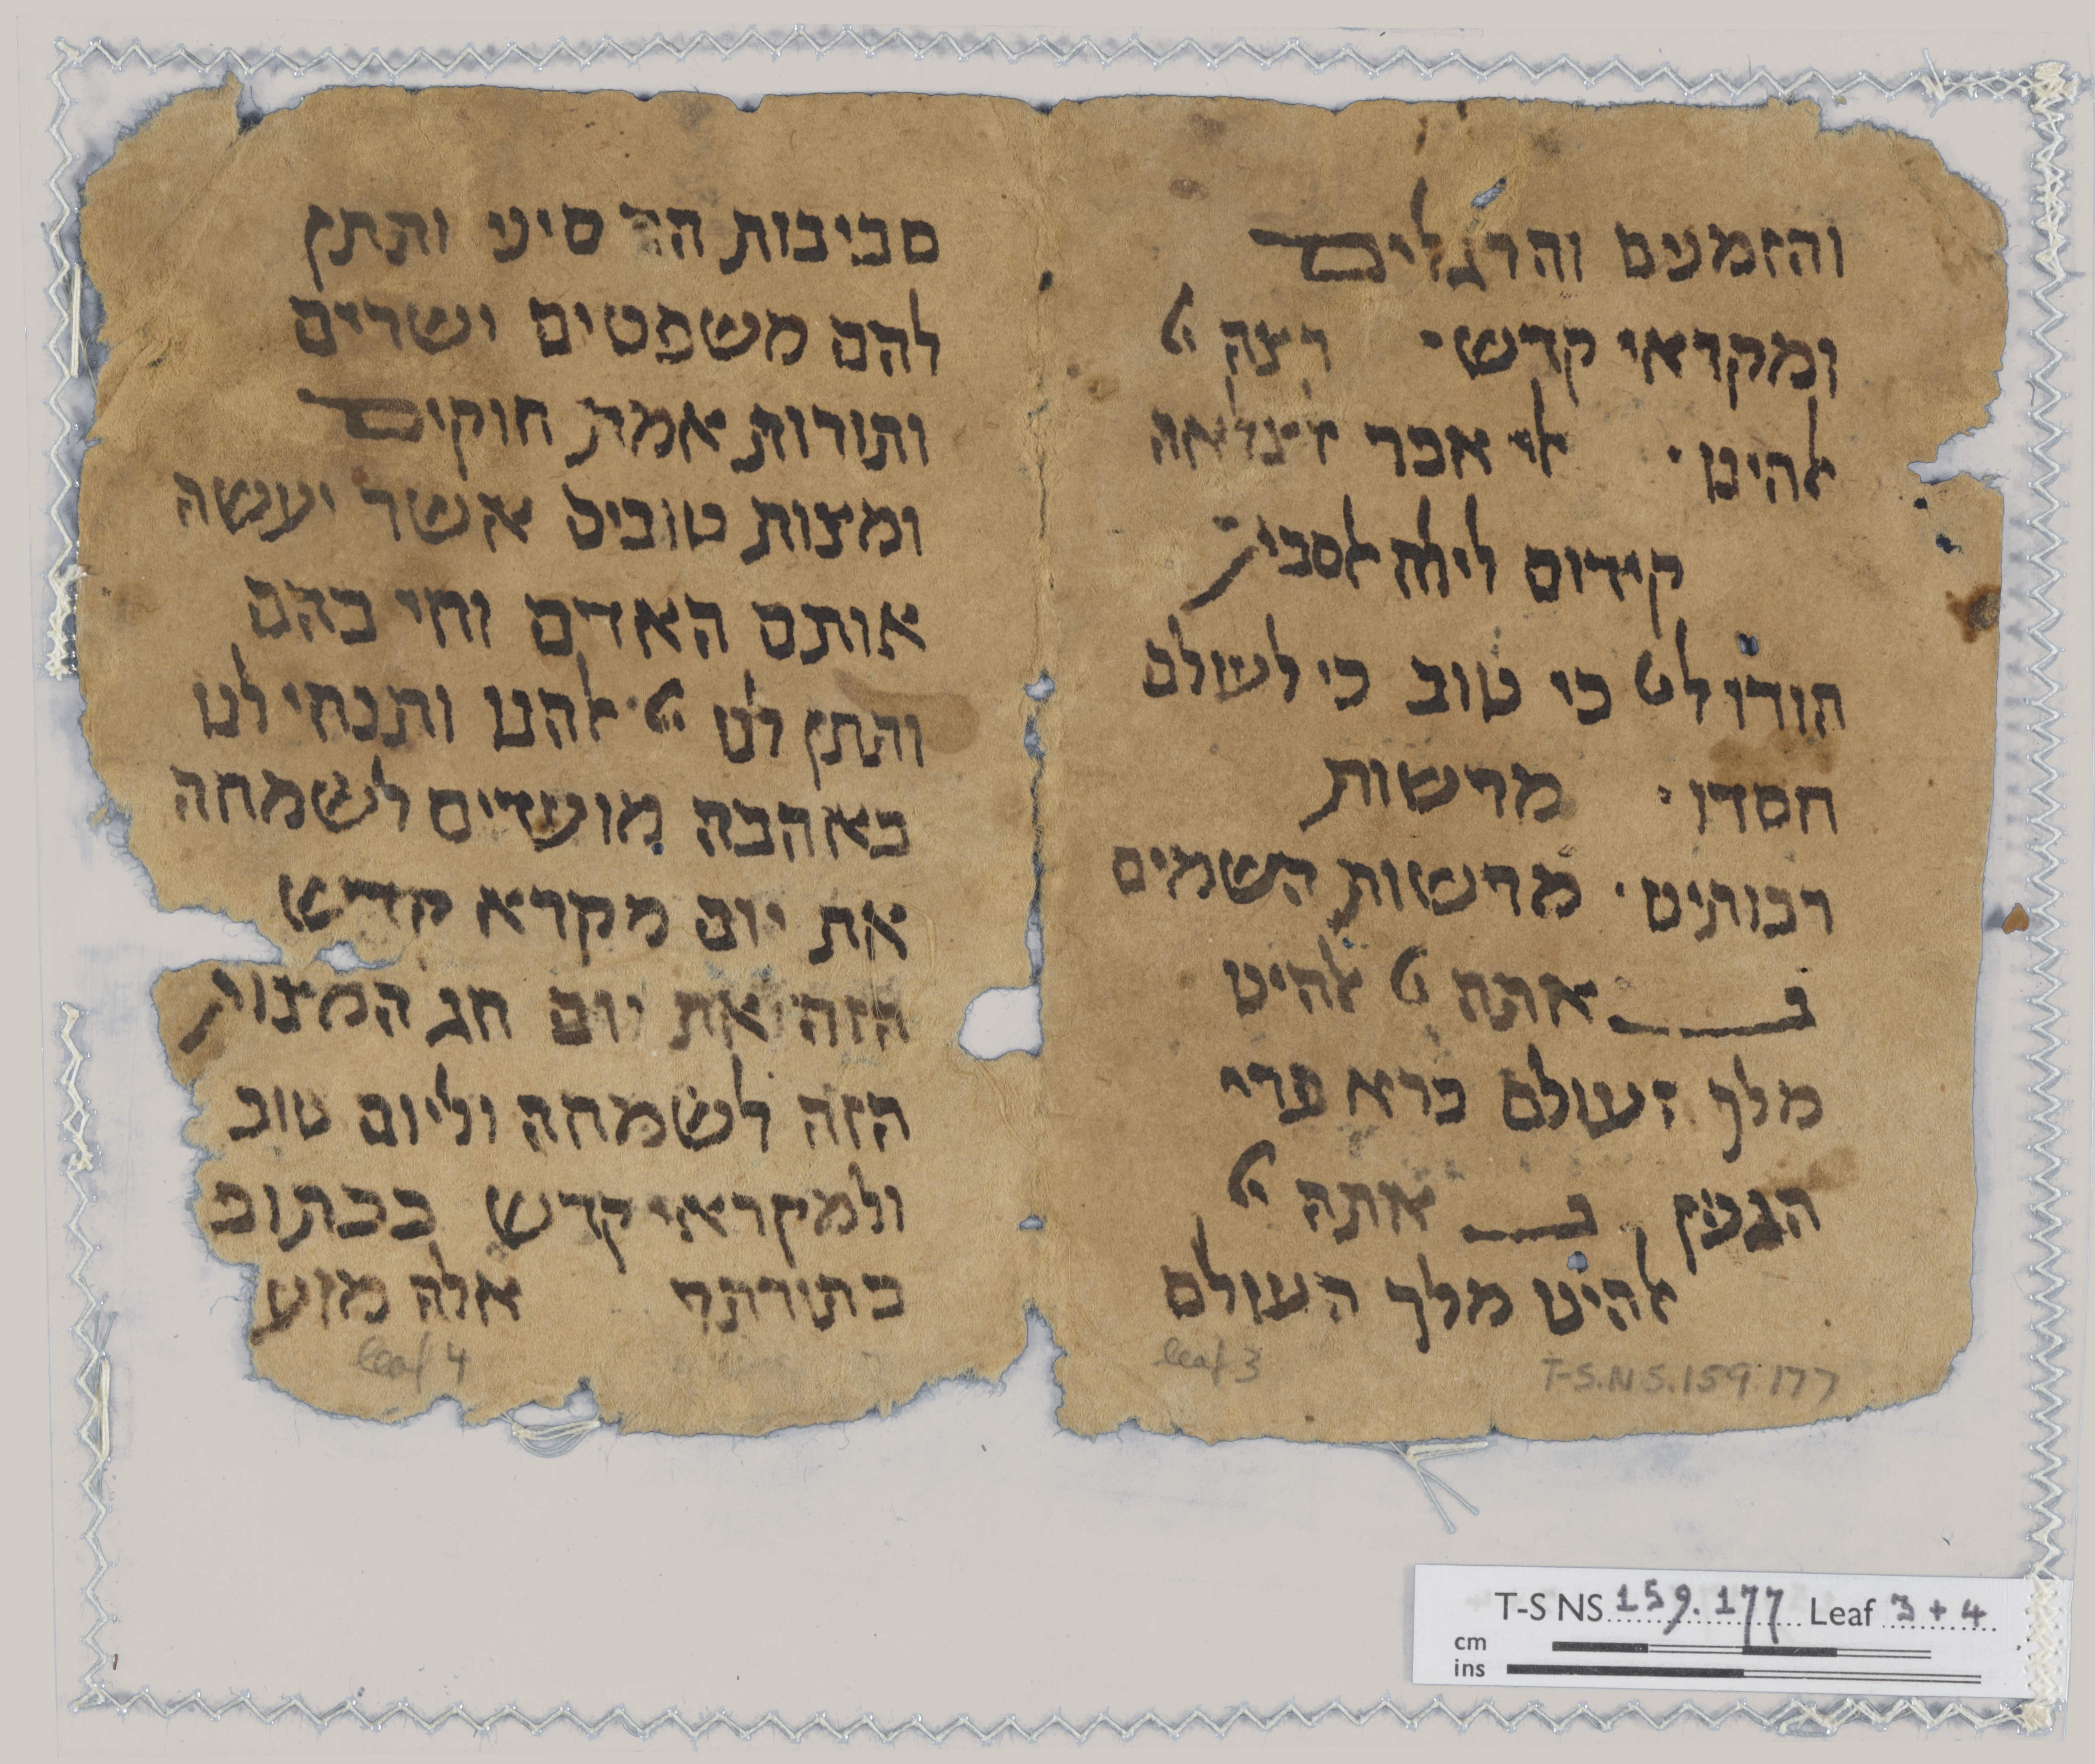 והזמנים והרגלים
ומקראי קדשי רצה
אלהינו לי אכר
קידוש לילה אלסבי
הודו לי׳ כי טוב כי לעולם
חסדו מרשות
רבותינו מרשות השמים
ב אתה אלהינו
מלך העולם ברא פרי
הגפן ב אתה
אלהינו מלך העולם
סביבות הר סיני ותתן
להם משפטים ישרים
ותורות אמת חוקים
ומצות טובים אשר יעשה
אותם האדם וחי בהם
ותתן לנו אלהנו ותנחי לנו
באהבה מועדים לשמחה
את יום מקרא קדש
הזה את יום חג המצות
הזה לשמחה וליום טוב
ולמקראי קדש ככתוב
בתורתך אלה מוע
leaf 4
leaf 3
T-S.N.S.159.177
T-S NS 159.177 Leaf 3+4
cm
ins